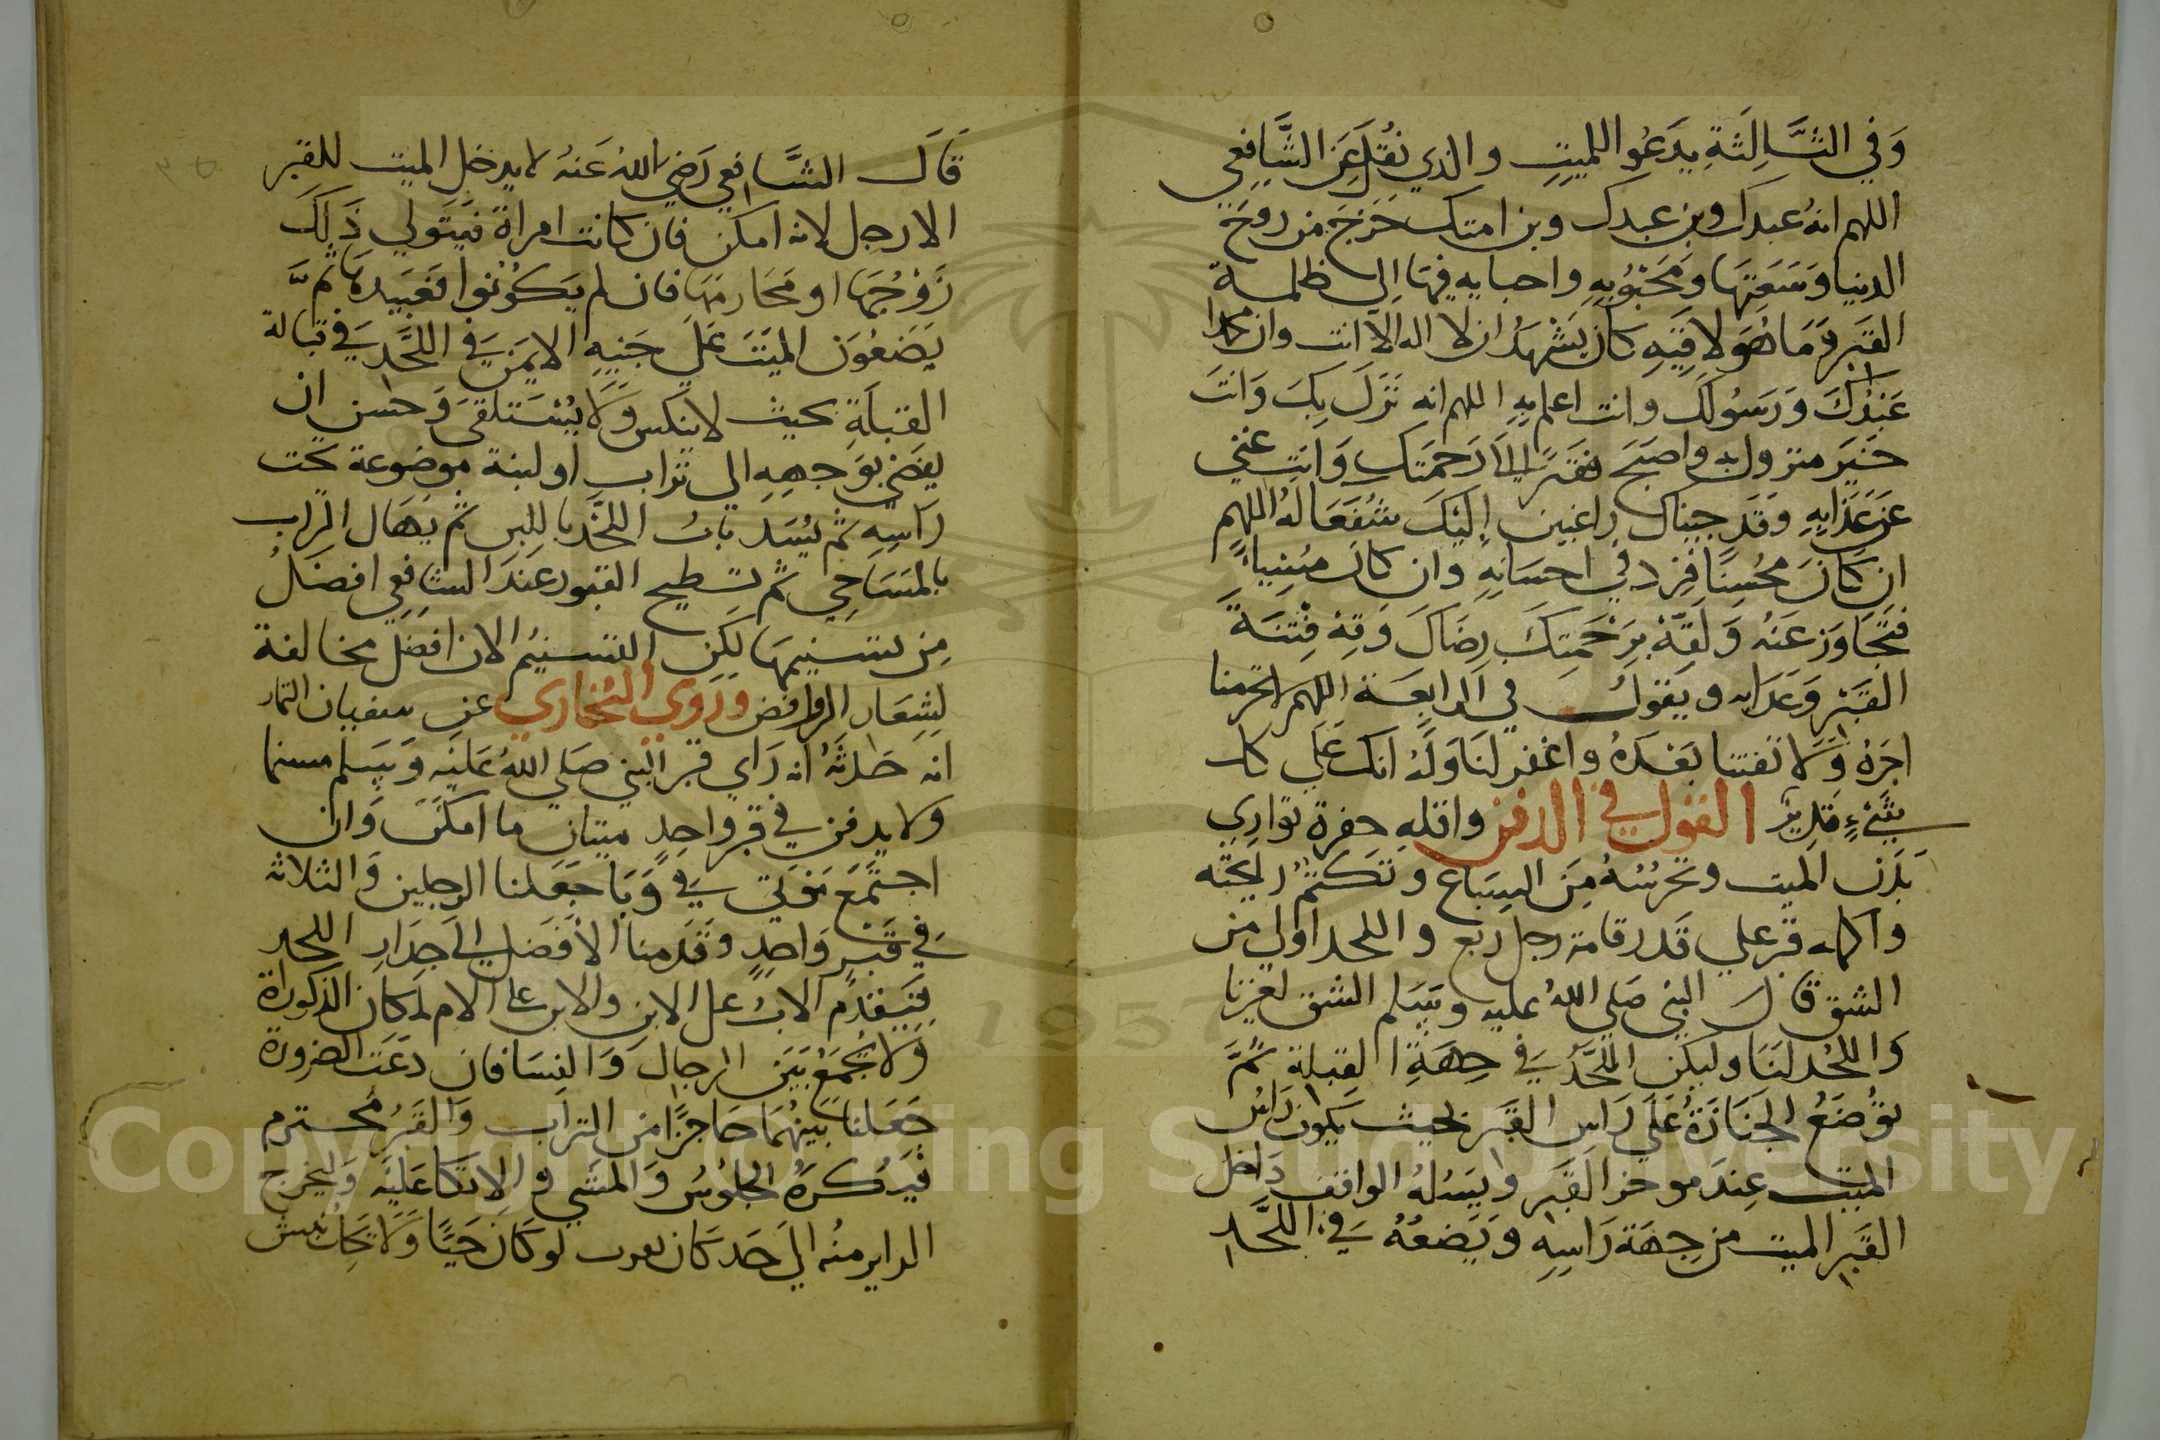 وَفي الثَّالِثَةِ يدَعُوا للميتِ والذي نقُلَ عَن الشَّافِعي
اللهم انهُ عبدك وبن عبدك وبن امتك خَرَجَ من روح
الدنيا وسَعَتِهَا ومَحَبُوبِهِ واحبايه فيهَا اِلى ظلمة
القبَر ومَا هُوَ لاقيِهِ كان يَشْهَدُ ان لا اله الا انت وان محمدا
عَبْدُكَ وَرَسُولكَ وانت اعلم بهِ اللهم انه نَزَلَ بِكَ وَانتَ
خَيَر منزول به واصبَحَ فقيرًا الى رَحمَتك وَانت غني
عَن عَذَابِهِ وَقَد جيناك راغبين إليَكَ شُفَعَا لهُ اللهم
ان كَانَ محُسِنًا فزد في احسَانِهِ وان كان مسُيِيا
فتَجَاوَز عَنهُ وَلَقِّهْ برَحْمَتِكَ رِضَاكَ وَقِهْ فِتنَةَ
القَبْر وَعَذابه ويَقولُ في الرابعَة اللهم لا تحرمنا
اجرَهُ وَلَا تفتنا بَعْدَهُ واغفر لنَا وَلَهُ انك عَلَى كل
شَيْءٍ قَدِيرٌ القول في الدفن واقلهِ حفرة تواري
بَدَن الميت وتحرُسُهُ مِنَ السِبَاع وتَكتمُ رايحته
واكمله قبر علي قَدر قامة رجل ربع واللحد اولى من
الشق قال النبي صَلى اللهُ عليه وسَلم الشق لغيرنا
وَاللحْد لنَا وليكن اللَّحْدُ في جهَةِ القِبلة ثمَّ
توُضَعُ الجَنَازَةُ عَلى رَاس القَبَر بحيث يَكون رَاسُ
الميت عِندَ موخر القَبر ويَسُلهُ الواقف دَاخل
القبَر الميت من جِهَة رَاسِهِ ويَضعُهُ في اللَّحْد
قَالَ الشَّافِعي رَضي اللهُ عَنهُ لا يدخل الميت للقبر
الا رجل لانه امكن فان كانت امراة فيَتَولي ذَلِكَ
زَوْجُهَا او مَحَارمهَا فان لم يَكوُنوا فعَبيدهَا ثمَّ
يَضَعُوَن الميَتَ عَلَى جَنبِهِ الايمَن في اللَّحْد في قبالة
القبلَةِ بحيث لا ينكس وَلا يُسْتَلقَى وَحسن ان
يفضي بوَجههِ الي تراب او لبنة موضوعة تحت
رَاسِهِ ثم يُسَد بَابُ اللَّحْد باللبن ثم يهَال التراب
بالمَسَاحِي ثم تسطيح القبور عندَ الشافِعي افضَلُ
مِن تسنيمهَا لكن التسنيمُ الان افضَل مخالفة
لِشِعَار الروافض ورَوي البُخَاري عَن سفيان التمار
انه حَدثَهُ انه رَاي قبر النبي صَلى اللهُ عَليَه وَسَلم مسنما
ولا يدفن في قبر واحِدٍ ميتان ما امكنَ وَان
اجتَمَعَ مَوتي في وَبَا جَعَلنا الرجلين وَالثلاثه
في قَبْرٍ وَاحِدٍ وقدمنا الافَضَل الى جدَارِ اللحد
فيَتقدم الابُ على الابن والابن على الام لمكان الذكوراة
وَلا يُجْمَعُ بَيَن الرجال وَالنِسَا فان دَعَت الضرورة
جَعَلنا بَينهُمَا حَاجِزًا من التراب وَالقَبرُ محُترم
فيُكرَهُ الجلوُسُ وَالمشَي والاتكا عَليَه وَليخرج
الزاير منُه الي حَد كَان يقرب لو كَان حَيًا وَلا يَجُوز نبش